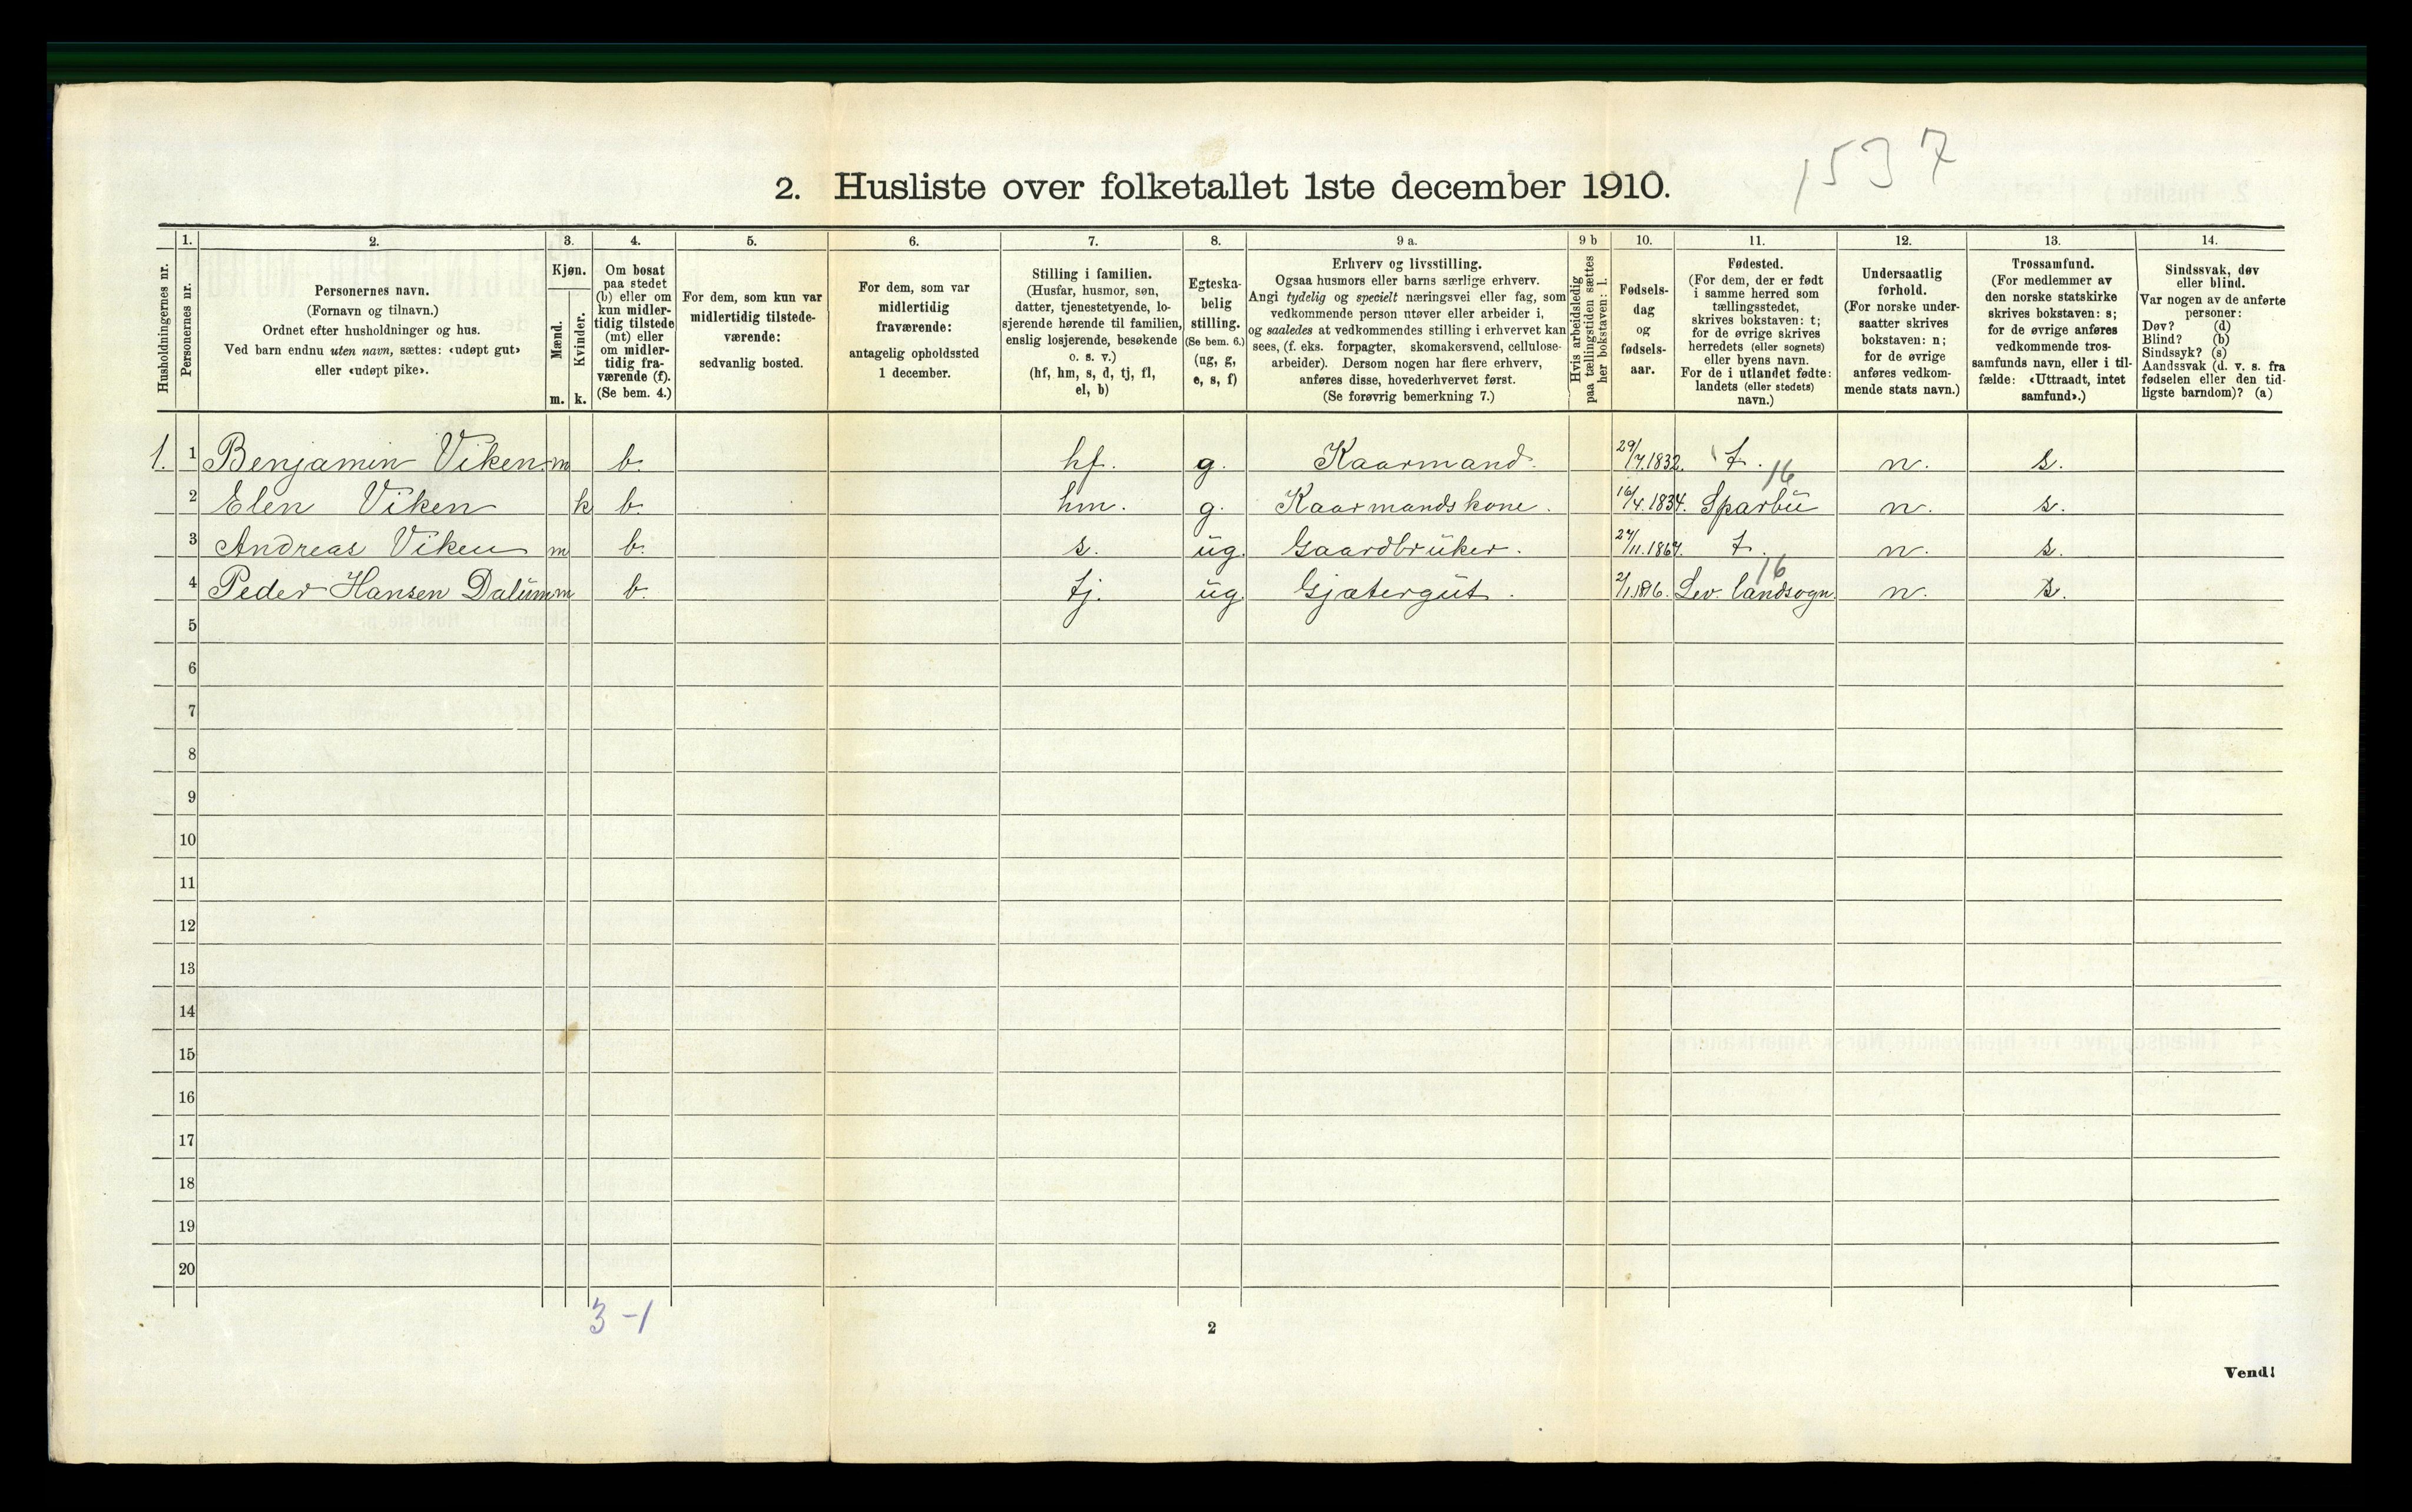 1537
2. Husliste over folketallet 1ste december 1910.
Husholdningernes nr.
1.
Personernes nr.
2.
Personernes navn.
(Fornavn og tilnavn.)
Ordnet efter husholdninger og hus.
Ved barn endnu uten navn, sættes: «udøpt gut»
eller «udøpt pike».
3.
Kjøn.
Mænd.
Kvinder.
m. k.
4.
Om bosat
paa stedet
(b) eller om
kun midler-
tidig tilstede
(mt) eller
om midler-
tidig fra-
værende (f).
(Se bem. 4.)
5.
For dem, som kun var
midlertidig tilstede-
værende:
sedvanlig bosted.
6.
For dem, som var
midlertidig
fraværende:
antagelig opholdssted
1 december.
7.
Stilling i familien.
(Husfar, husmor, søn,
datter, tjenestetyende, lo-
sjerende hørende til familien,
enslig losjerende, besøkende
o. s. v.)
(hf, hm, s, d, tj, fl,
el, b)
8.
Egteska-
belig
stilling.
(Se bem. 6.)
(ug, g,
e, s, f)
9 a.
Erhverv og livsstilling.
Ogsaa husmors eller barns særlige erhverv.
Angi tydelig og specielt næringsvei eller fag, som
vedkommende person utøver eller arbeider i,
og saaledes at vedkommendes stilling i erhvervet kan
sees, (f. eks. forpagter, skomakersvend, cellulose-
arbeider). Dersom nogen har flere erhverv,
anføres disse, hovederhvervet først.
(Se forøvrig bemerkning 7.)
9 b
Hvis arbeidsledig
paa tællingstiden sættes
her bokstaven: l.
10.
Fødsels-
dag
og
fødsels-
aar.
11.
Fødested.
(For dem, der er født
i samme herred som
tællingsstedet,
skrives bokstaven: t;
for de øvrige skrives
herredets (eller sognets)
eller byens navn.
For de i utlandet fødte:
landets (eller stedets)
navn.)
12.
Undersaatlig
forhold.
(For norske under-
saatter skrives
bokstaven: n;
for de øvrige
anføres vedkom-
mende stats navn.)
13.
Trossamfund.
(For medlemmer av
den norske statskirke
skrives bokstaven: s;
for de øvrige anføres
vedkommende tros-
samfunds navn, eller i til-
fælde: «Uttraadt, intet
samfund».)
14.
Sindssvak, døv
eller blind.
Var nogen av de anførte
personer:
Døv? (d)
Blind? (b)
Sindssyk? (s)
Aandssvak (d. v. s. fra
fødselen eller den tid-
ligste barndom)? (a)
1. 1 Benjamin Viken m b. hf. g. Kaarmand. 29/7.1832. t. n. s.
16
2 Elen Viken k b. hm. g. Kaarmandskone. 16/4.1834. Sparbu n. s.
3 Andreas Viken m b. s. ug. Gaardbruker. 27/11.1867. t. n. s.
16
4 Peder Hansen Dalum m b. tj. ug. Gjætergut. 2/1.1896. Lev. landsogn. n. s.
5
6
7
8
9
10
11
12
13
14
15
16
17
18
19
20
3 - 1
2
Vend!